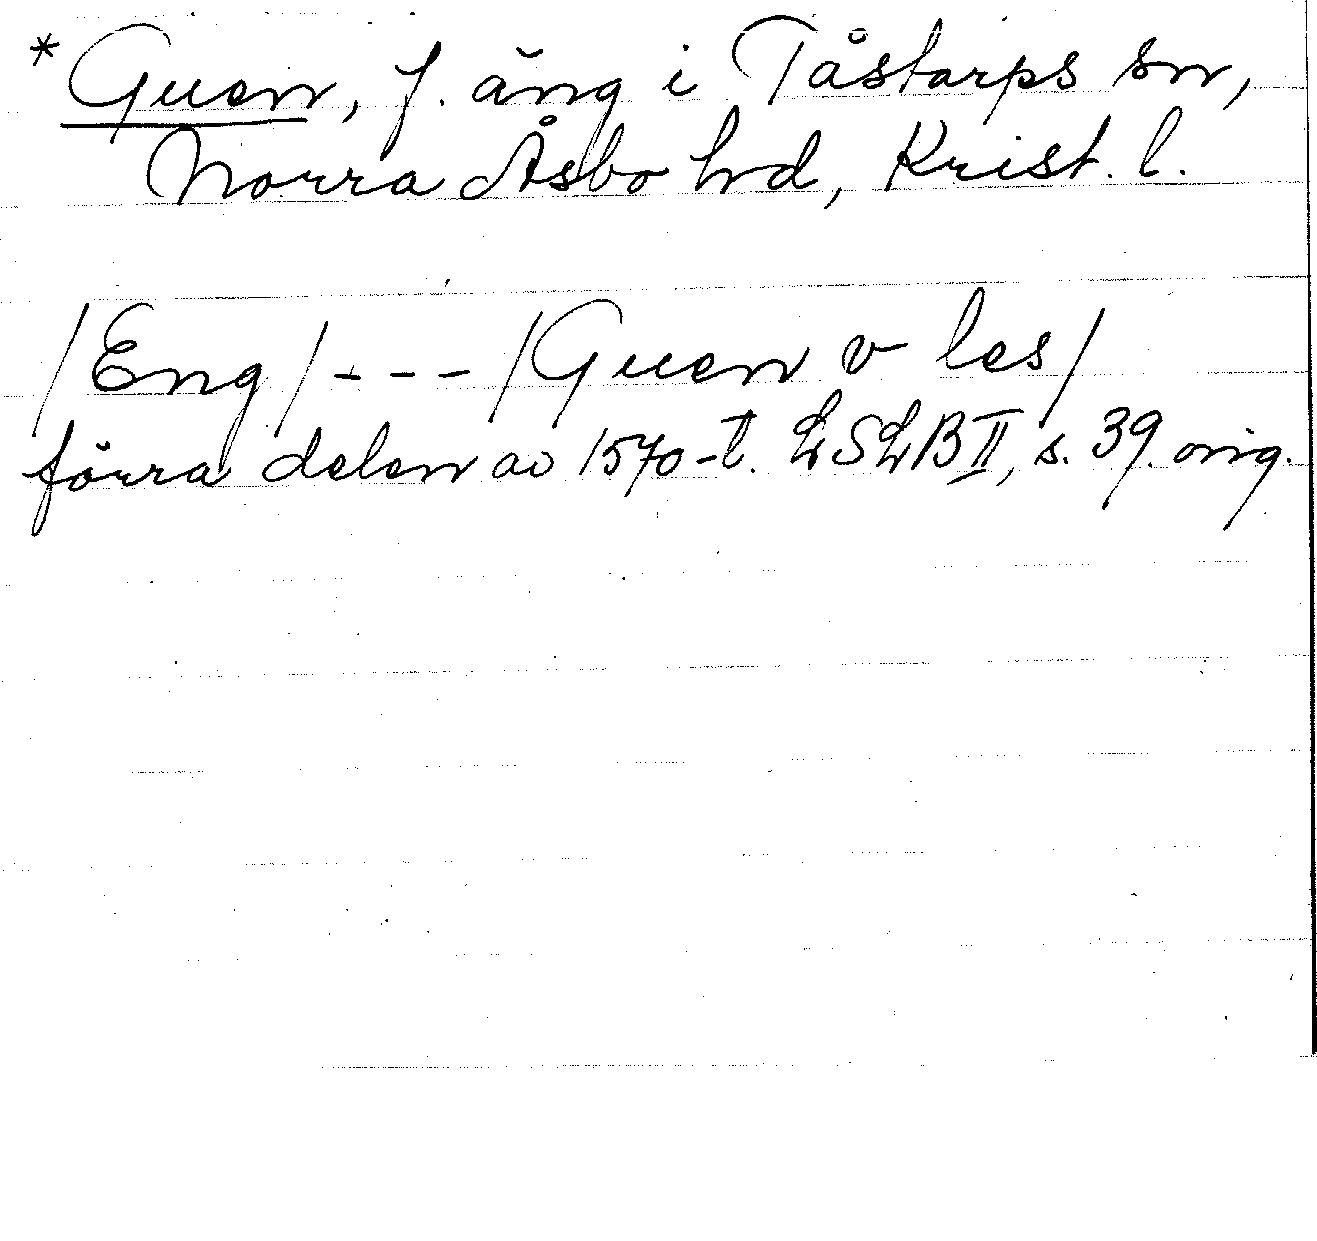 * Guen, f. äng i Tåstarps sn,
Norra Åsbo hd, Krist. l.
/Eng/ --- /Guen v les/
förra delen av 1570-t. LSLB II, s. 39. orig.